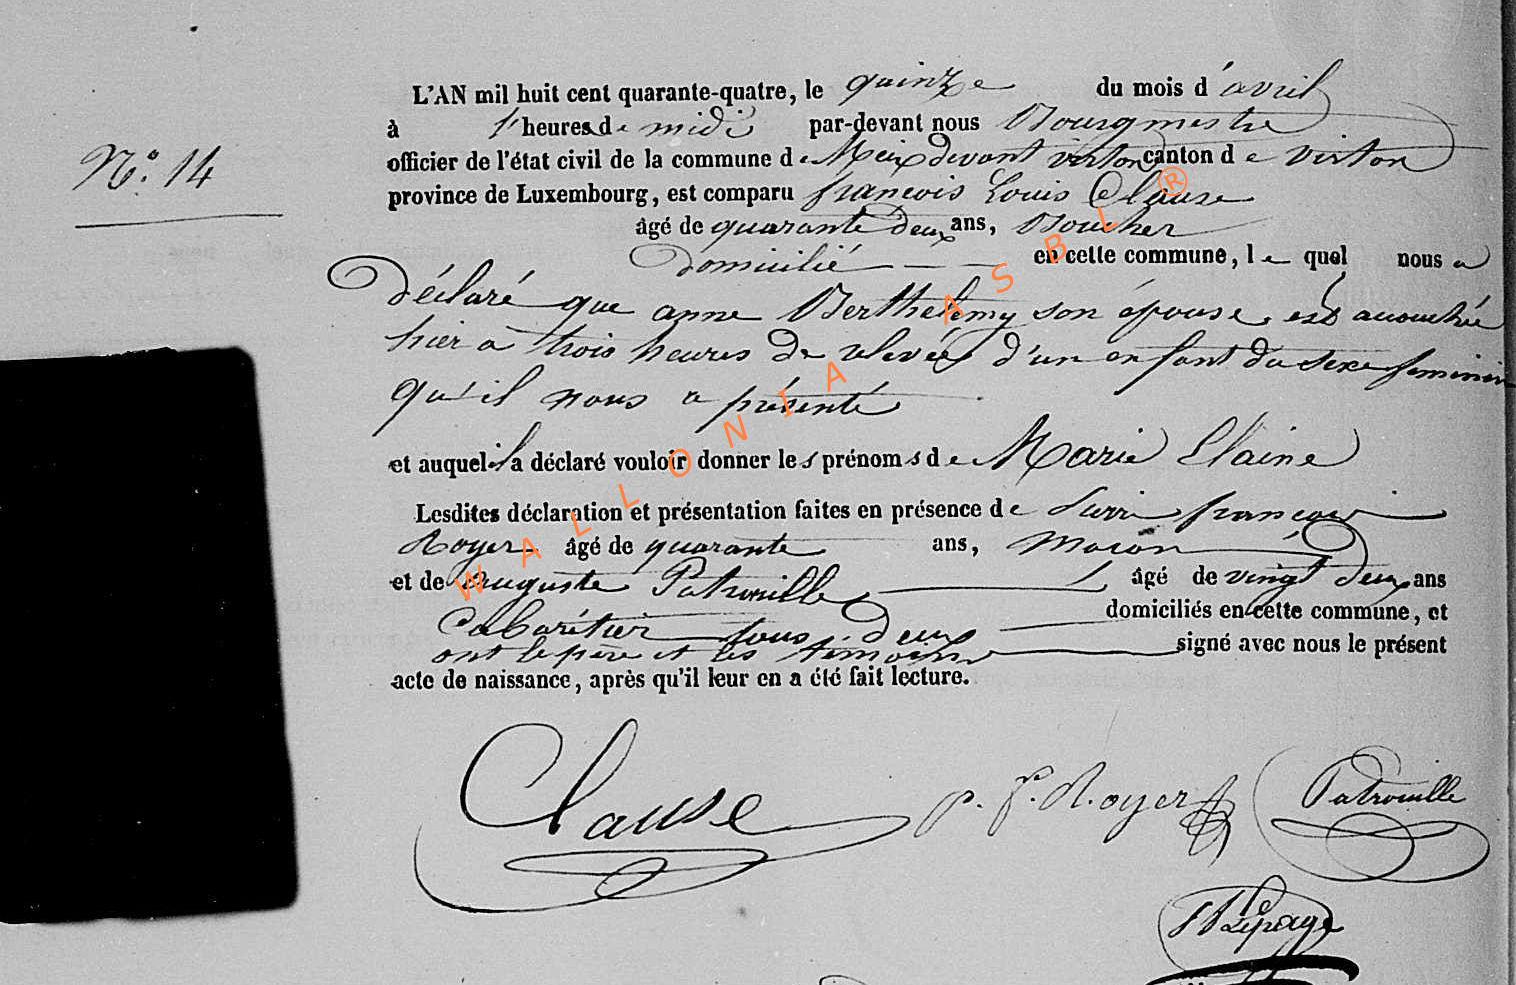 L'AN mil huit cent quarante-quatre, le quinze du mois d'avril
N° 14
à heures de midi par-devant nous Bourgmestre
officier de l'état civil de la commune de Meix devant virton canton de virton
province de Luxembourg, est comparu françois Louis Clause
âgé de quarante deux ans, Boucher
domicilié en cette commune, le quel nous a
déclaré que anne Berthelemy son épouse, est accouchée
hier à trois heures de relevée d'un enfant du sexe feminin
qu'il nous a présenté
et auquel il a déclaré vouloir donner les prénoms de Marie
Lesdites déclaration et présentation faites en présence de françois
Royer âgé de quarante ans, macon
et de auguste Patrouille âgé de vingt deux ans
Cabaretier tous deux domiciliés en cette commune, et
ont le père et les témoins signé avec nous le présent
acte de naissance, après qu'il leur en a été fait lecture.
Clause p. fr. Royer Patrouille
Lepage
WALLONIA ASBL ®